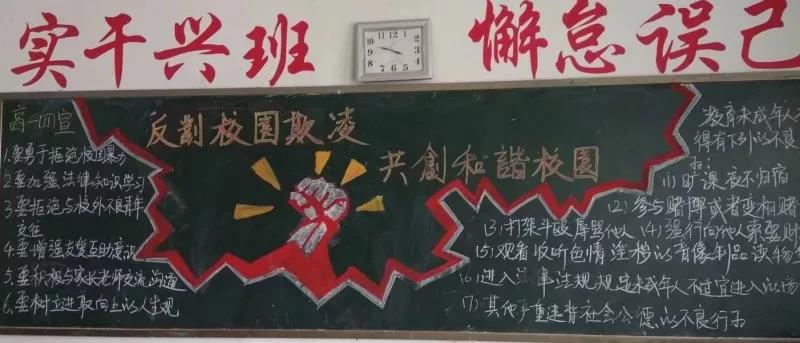 实干兴班 懈怠误己
反對校園欺凌
共創和諧校園
高一四宣
1.要勇于拒绝校园暴力
2.要加强法律知识学习
3.要拒绝与校外不良青年
交往
4.要增强友爱互助意识
5.要积极与家长老师交流沟通
6.要树立进取向上的人生观
教育未成年人不
得有下列的不良
(1)旷课夜不归宿
(2)参与赌博或者变相赌
(3)打架斗殴辱骂他人 (4)强行向他人索要财
(5)观看收听色情淫秽的音像制品读物
(6)进入法律法规规定未成年人不宜进入的场
(7)其他严重违背社会公德的不良行为